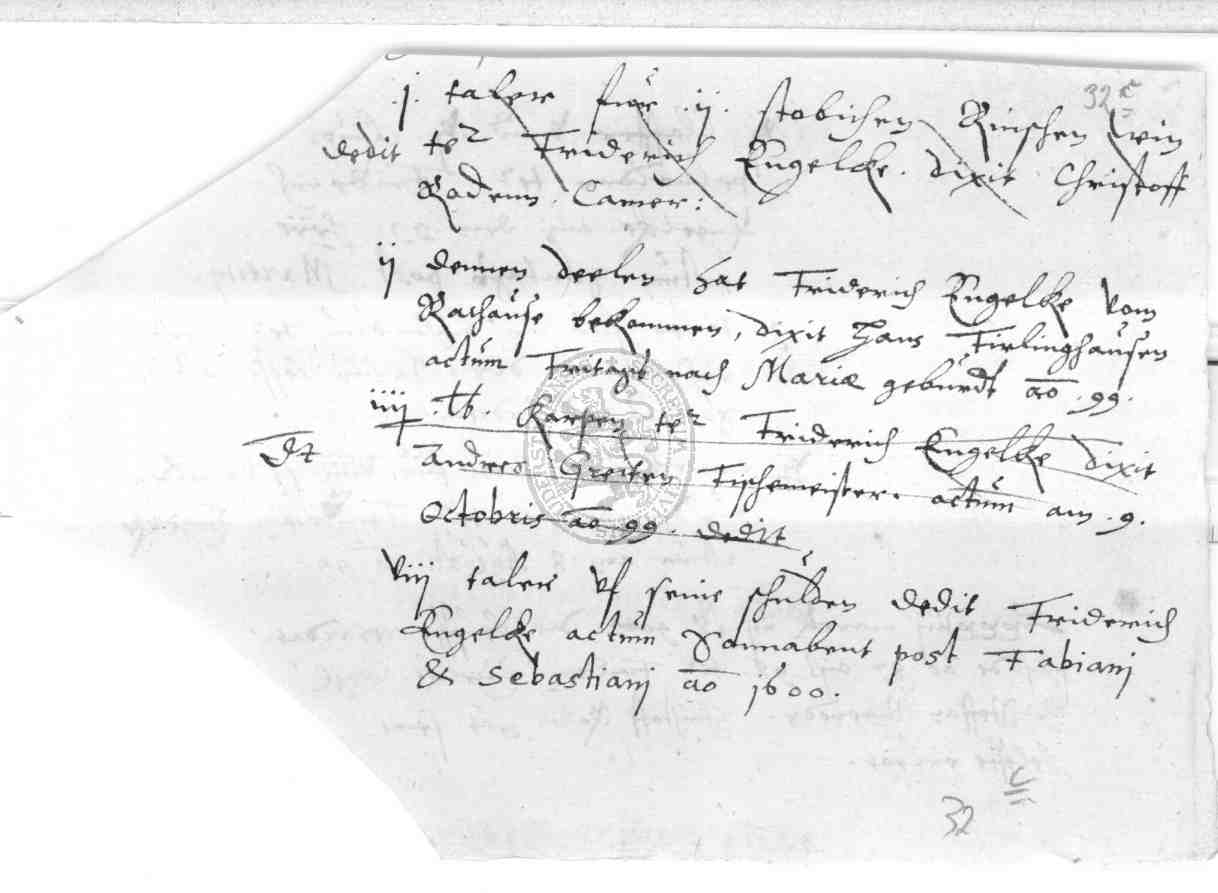 32 c
.j. taler fuer .ij. stobichen Rinschen win
dedit te2 Friderich Engelcke. dixit Christoff
Radenn. Camer:
ij dennen deelen hat Friderich Engelke vom
Rathause bekommen, dixit Hans Firlinghausen
actum Fritags nach Mariæ geburdt ao .99.
iiij .tb. Karpen te2 Friderich Engelke dixit
dt Andres Greiten Fischemeister. actum am .9.
Octobris ao 99. dedit
viij taler vf seine schulden dedit Friderich
Engelcke actum Sonnabent post Fabiani
& Sebastiani ao 1600.
32 c